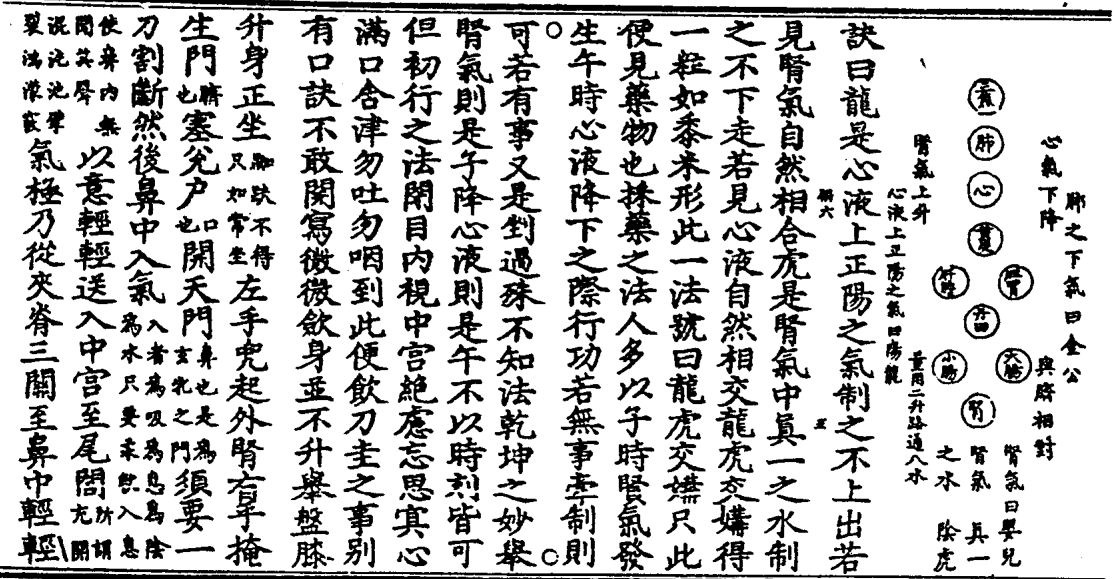 肺之下氣曰金公
心氣下降
與臍相對
腎氣曰嬰兒
腎氣 真一
之水 陰虎
肺
心
膽胃
肝脾
丹田
大腸
小腸
腎
腎氣上升
心液上正陽之氣曰陽龍
量用二升路通八水
訣曰龍是心液上正陽之氣制之不上出若
見腎氣自然相合虎是腎氣中真一之水制
之不下走若見心液自然相交龍虎交媾得
一粒如黍米形此一法號曰龍虎交媾只此
便見藥物也採藥之法人多以子時腎氣發
生午時心液降下之際行功若無事牽制則
可若有事又是剉過殊不知法乾坤之妙舉
腎氣則是子降心液則是午不以時刻皆可
但初行之法閉目内視中宫絶慮忘思冥心
滿口含津勿吐勿咽到此便飲刀圭之事别
有口訣不敢閑寫微微歛身並不升舉盤膝
升身正坐跏趺不得只如常坐左手兜起外腎右手掩
生門臍也塞兊户口也開天門鼻也是爲玄牝之門須要一
刀割斷然後鼻中入氣入者爲吸爲息爲陰爲水只要柔然入息
使鼻内無聞其聲以意輕輕送入中宫至尾閭所謂
混沌池擘裂鴻濛竅氣極乃從夾脊三關至鼻中輕輕